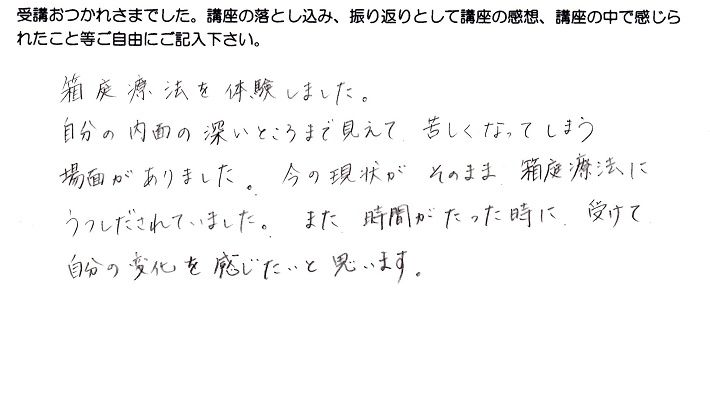 受講おつかれさまでした。講座の落とし込み、振り返りとして講座の感想、講座の中で感じら
れたこと等ご自由にご記入下さい。
箱庭療法を体験しました。
自分の内面の深いところまで見えて、苦しくなってしまう
場面がありました。今の現状が そのまま 箱庭療法に
うつしだされていました。また 時間がたった時に、受けて
自分の変化を感じたいと思います。